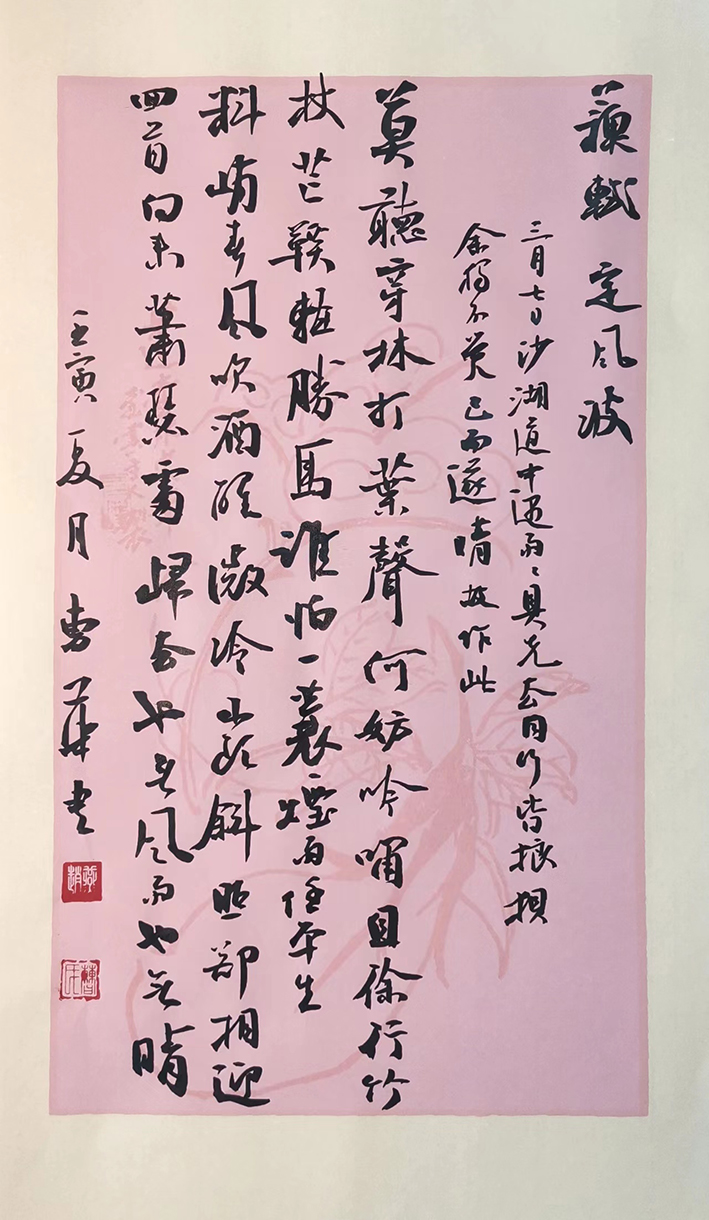 蘇軾 定風波
三月七日沙湖道中遇雨〻具先去同行皆狼狽
余獨不覺已而遂晴故作此
莫聽穿林打葉聲何妨吟嘯且徐行竹
杖芒鞵輕勝馬誰怕一蓑煙雨任平生
料峭春風吹酒醒微冷山頭斜照郤相迎
回首向来蕭瑟處歸去也无風雨也无晴
壬寅夏月曹華書